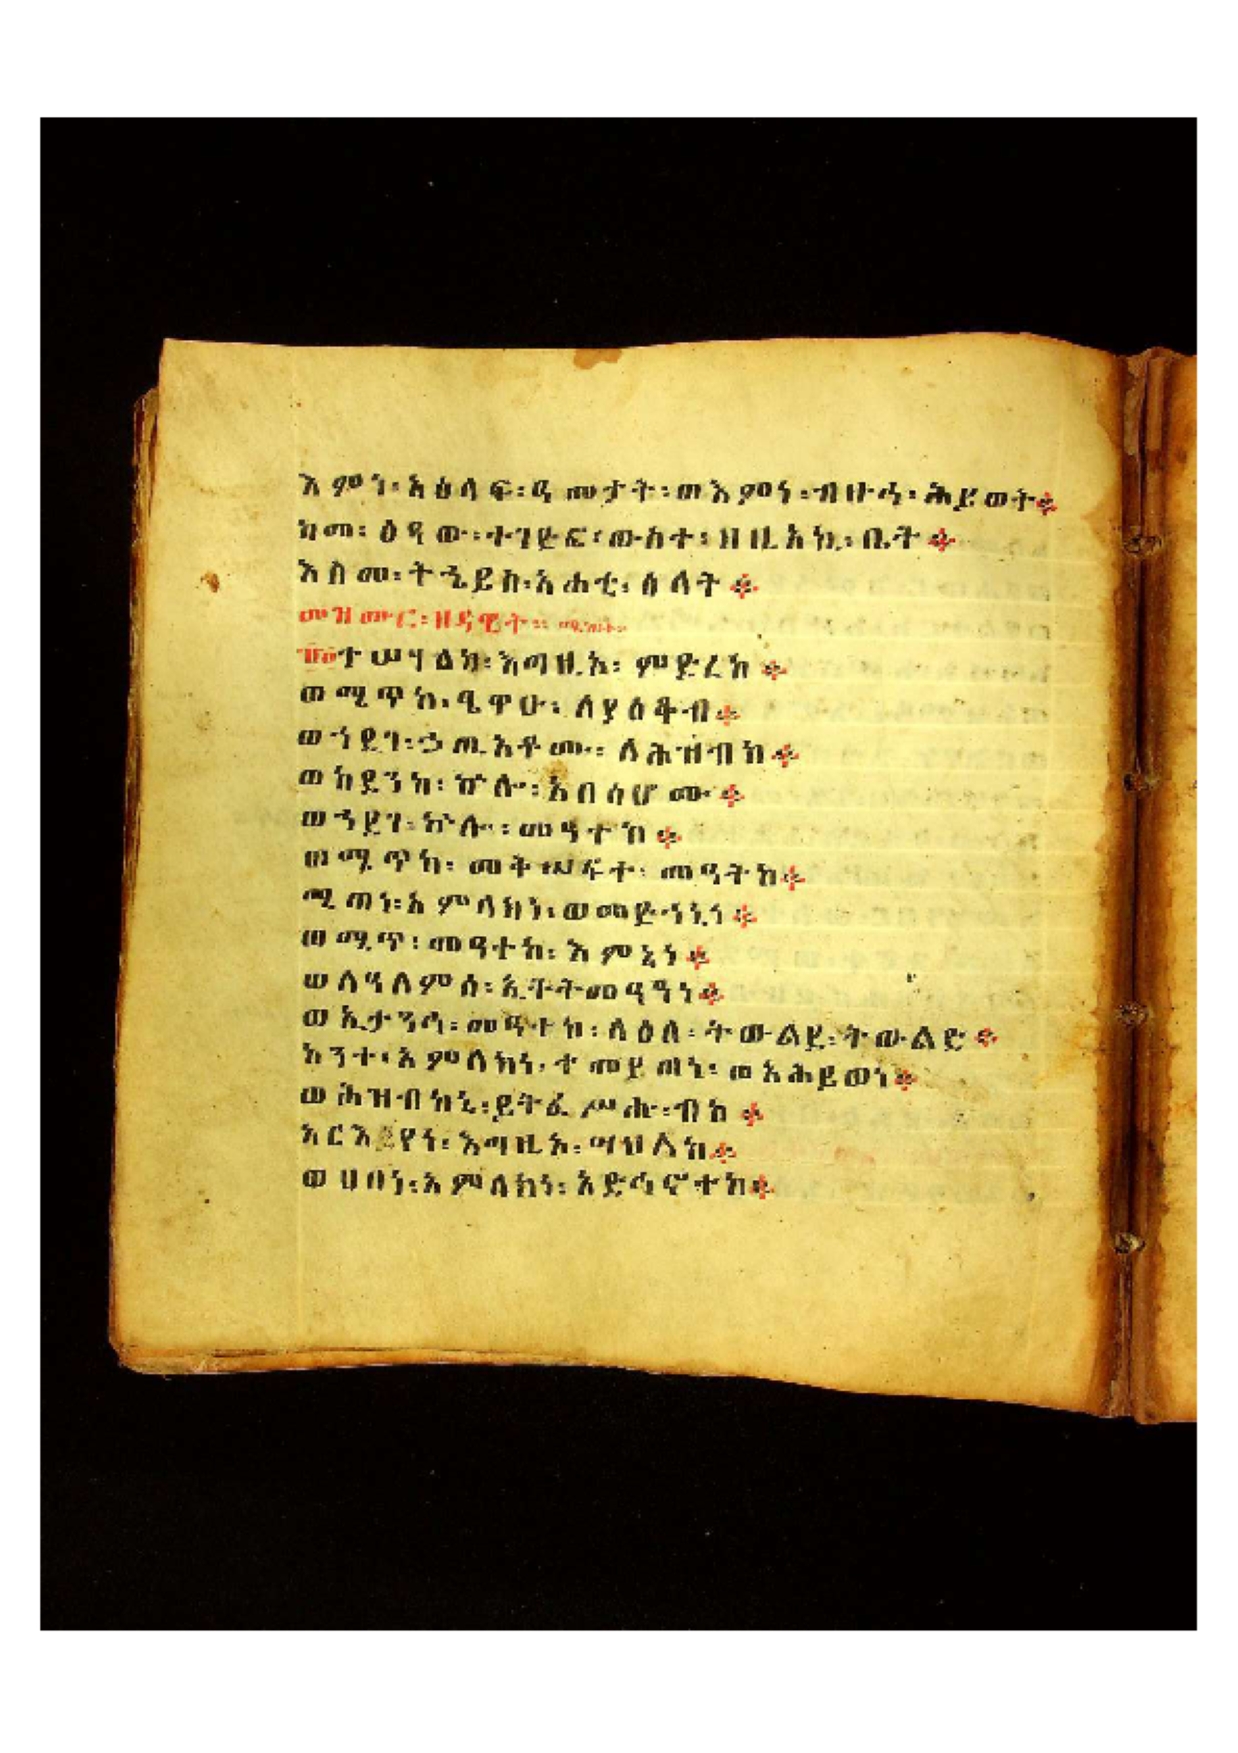 እምነ፡አዕላፍ፡ዓመታት፡ወእምነ፡ብዙኅ፡ሕይወት፨
ከመ፡ዕዳው፡ተገድፎ፡ውስተ፡ዘዚአኪ፡ቤት፨
እስመ፡ትኄይስ፡አሐቲ፡ዕለት፨
መዝሙር፡ዘዳዊት።
ተሣሃልከ፡እግዚአ፡ምድረከ፨
ወሚጥከ፡ፄዋሁ፡ለያዕቆብ፨
ወኀደገ፡ኃጢአቶሙ፡ለሕዝብከ፨
ወከደንከ፡ኵሎ፡አበሳሆሙ፨
ወኀደገ፡ኵሎ፡መዓተከ፨
ወሚጥከ፡መቅሠፍተ፡መዓትከ፨
ሚጠነ፡አምላክነ፡ወመድኀኒነ፨
ወሚጥ፡መዓተከ፡እምኔነ፨
ወለዓለምሰ፡ኢትትመዓዓነ፨
ወኢታንኅ፡መዓተከ፡ለዕለ፡ትውልደ፡ትውልድ፨
አንተ፡አምላክነ፡ተመየጠነ፡ወአሕይወነ፨
ወሕዝብከኒ፡ይትፈሥሑ፡ብከ፨
አርእየነ፡እግዚአ፡ሣህለከ፨
ወሀበነ፡አምላክነ፡አድኅኖተከ፨